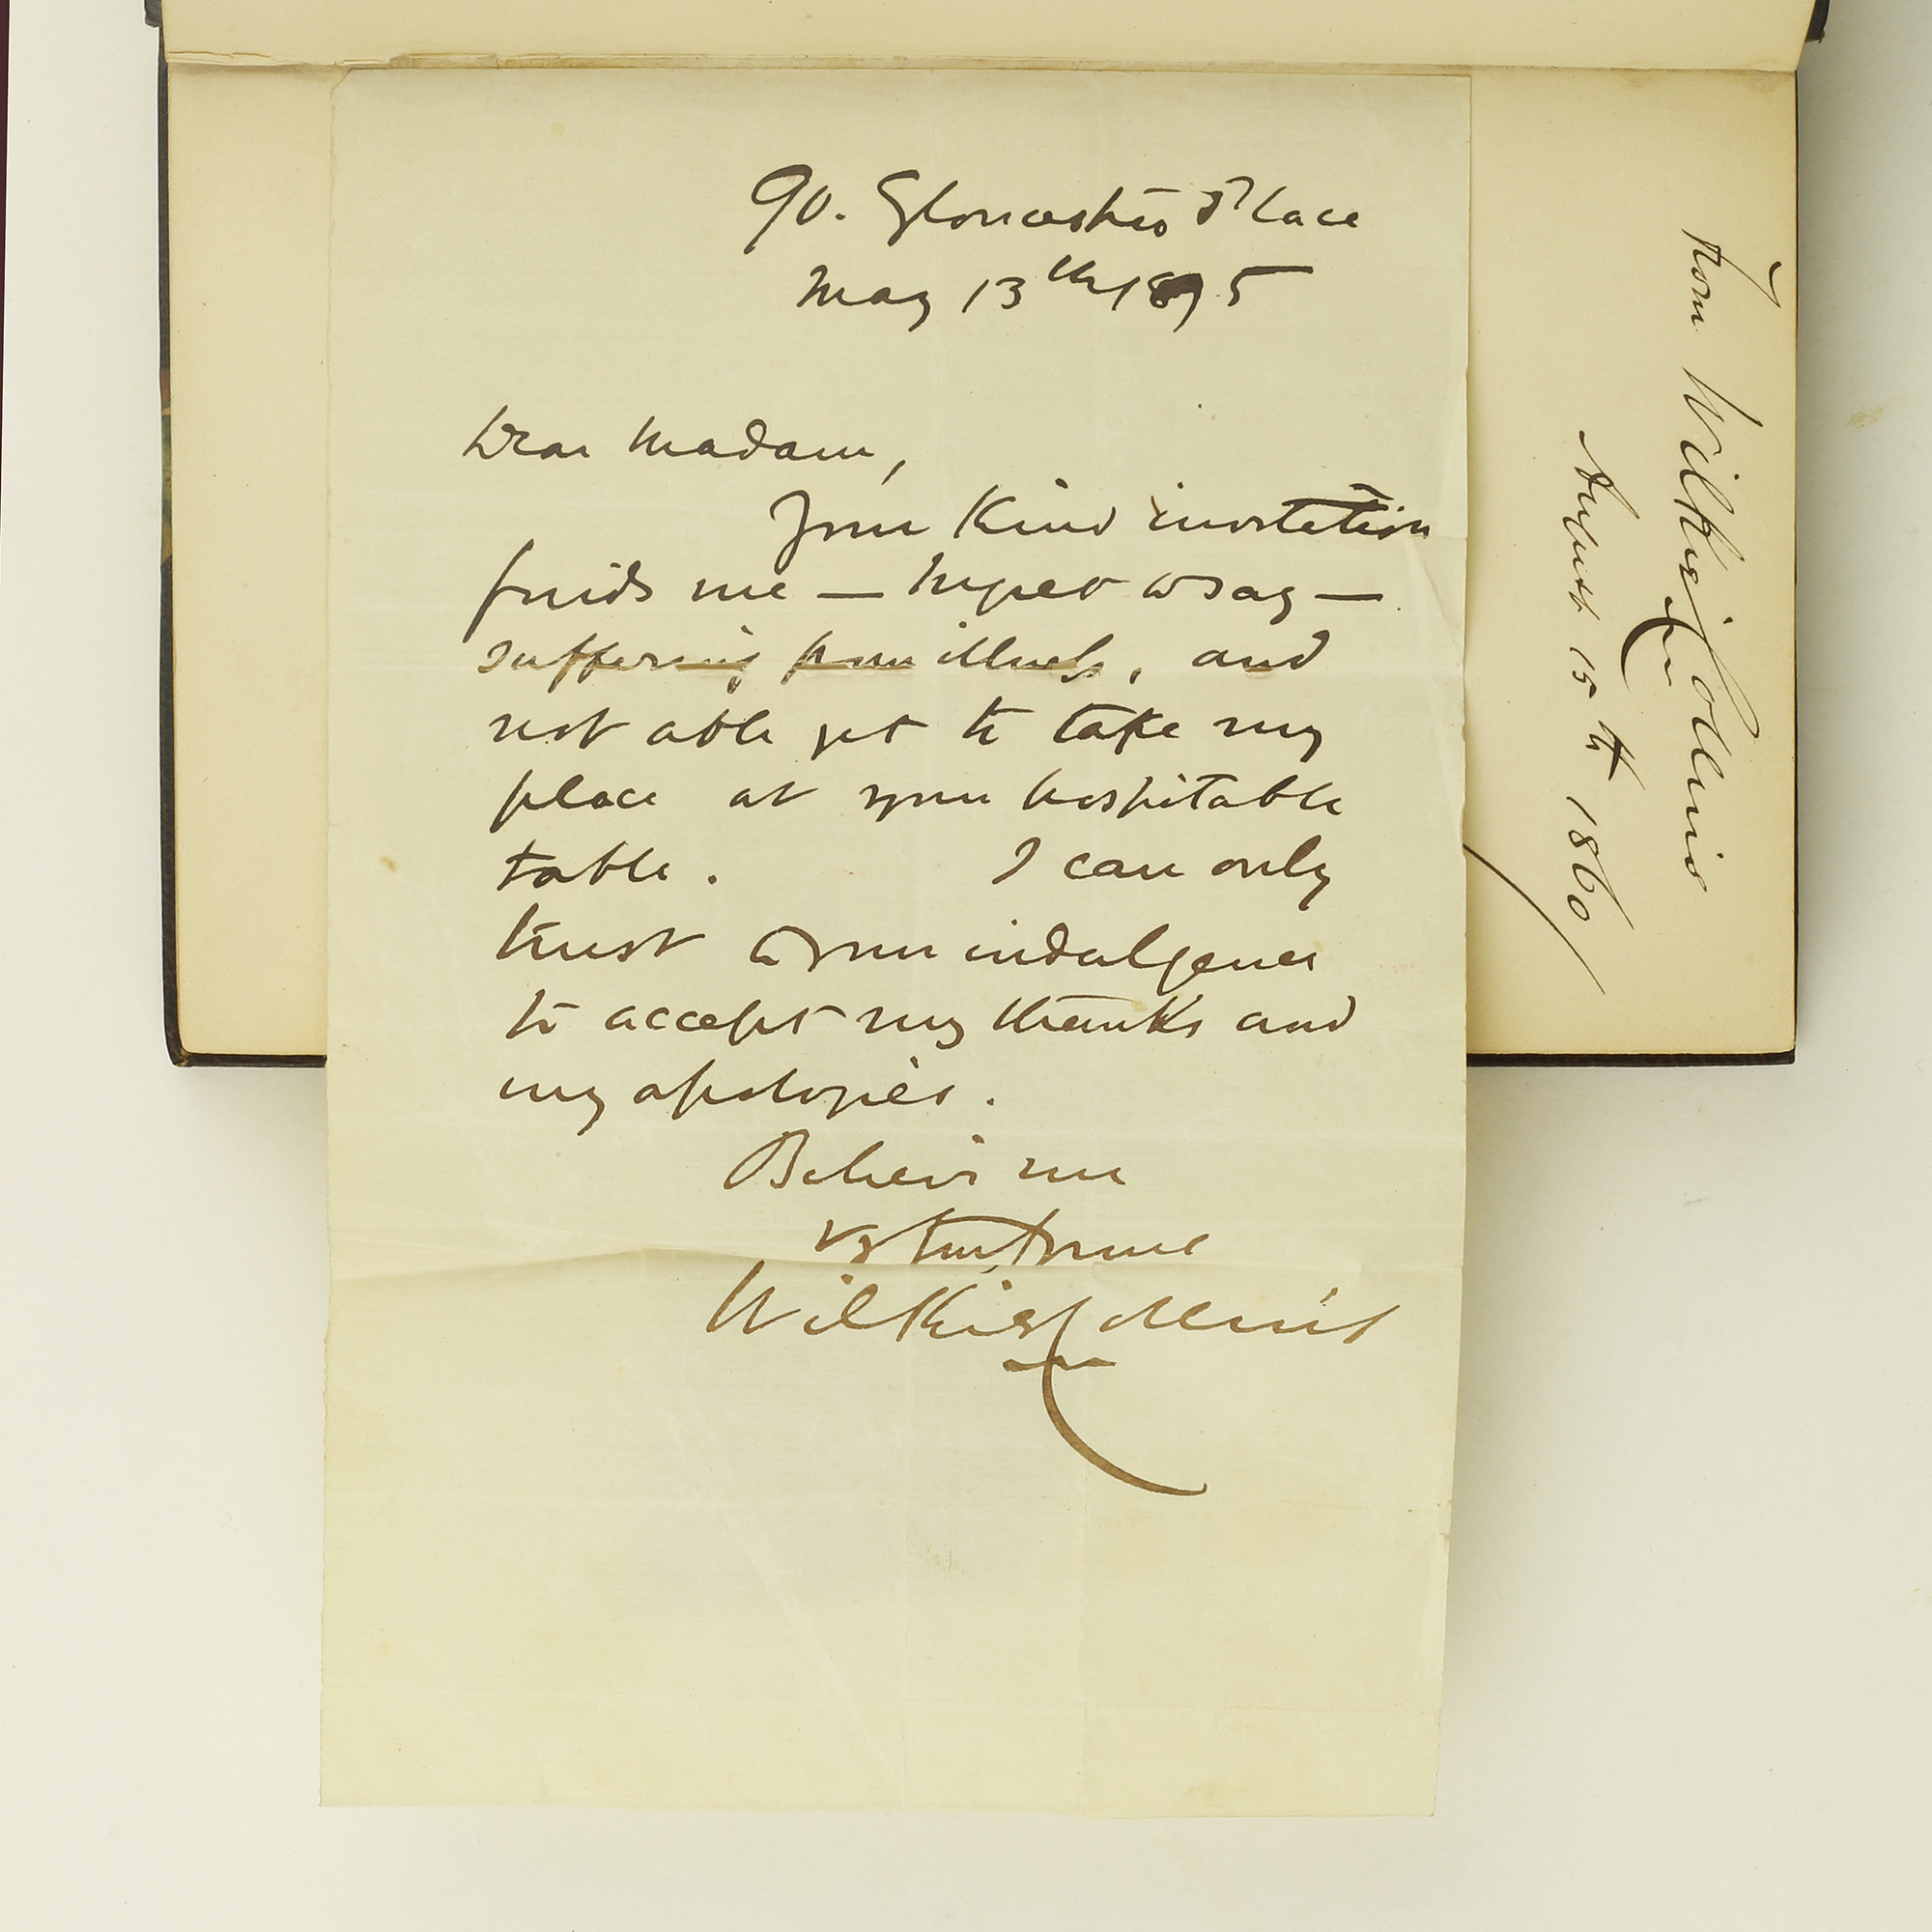 90. Gloucester Place
May 13th 1875
Dear Madam,
Your kind invitation
finds me — I regret to say —
suffering from illness, and
not able yet to take my
place at your hospitable
table. I can only
trust to your indulgence
to accept my thanks and
my apologies.
Believe me
vy truly yours
Wilkie Collins
from Wilkie Collins
August 15th 1860